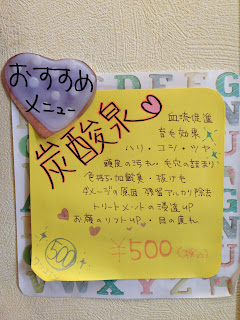 おすすめ
メニュー
炭酸泉
血流促進
育毛効果
ハリ・コシ・ツヤ
頭皮の汚れ・毛穴の詰まり
色持ち・加齢臭・抜け毛
ダメージの原因 残留アルカリ除去
トリートメントの浸透UP
お顔のリフトUP・目の疲れ
500
¥500